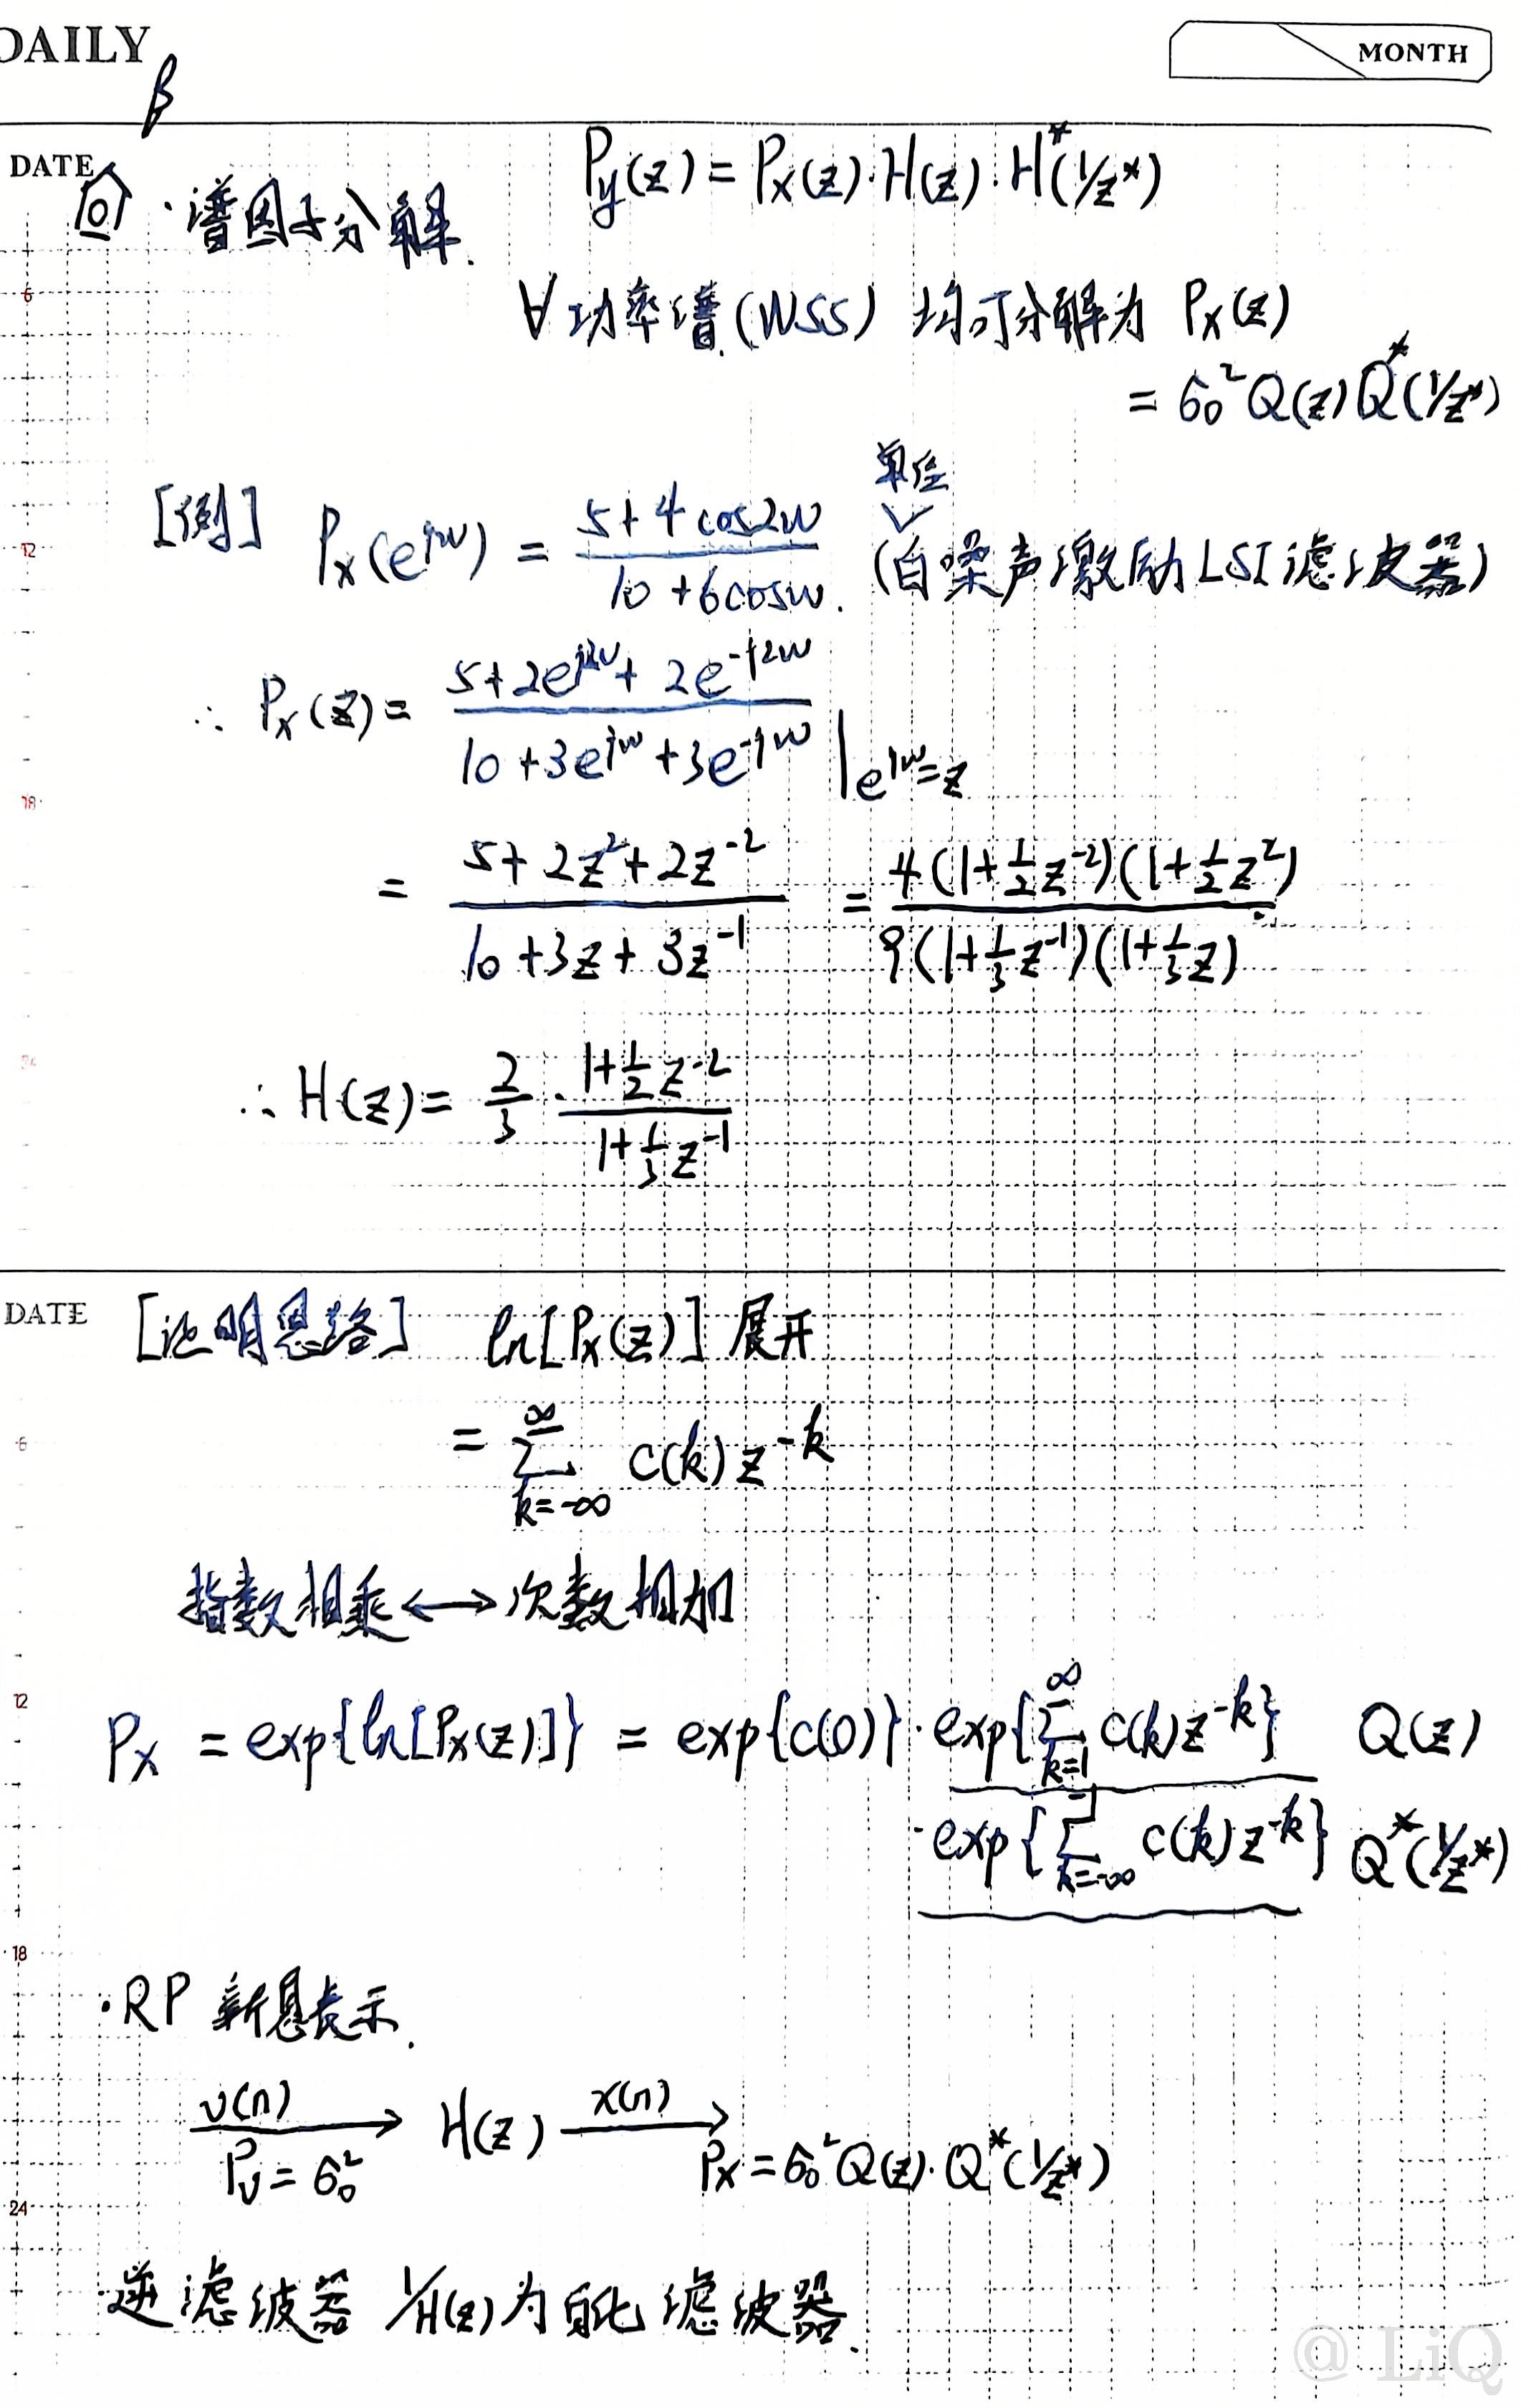 DAILY
MONTH
β
DATE
回 · 谱因子分解.
P_y(z) = P_x(z)·H(z)·H*(1/z*)
∀功率谱(WSS) 均可分解为 P_x(z)
= σ₀² Q(z) Q*(1/z*)
[例] P_x(e^{jw}) = (5+4cos2w)/(10+6cosw). (白噪声激励LSI滤波器)
单位
∴ P_x(z) = (5+2e^{j2w}+2e^{-j2w})/(10+3e^{jw}+3e^{-jw}) |e^{jw}=z
= (5+2z²+2z^{-2})/(10+3z+3z^{-1}) = 4(1+½z^{-2})(1+½z²)/9(1+⅓z^{-1})(1+⅓z)
∴ H(z) = 2/3 · (1+½z^{-2})/(1+⅓z^{-1})
DATE
[证明思路] ln[P_x(z)]展开
= ∑_{k=-∞}^{∞} c(k) z^{-k}
指数相乘 ⟷ 次数相加
P_x = exp{ln[P_x(z)]} = exp{c(0)}·exp{∑_{k=1}^{∞} c(k)z^{-k}} Q(z)
·exp{∑_{k=-∞}^{-1} c(k)z^{-k}} Q*(1/z*)
·RP 新息表示.
v(n) → H(z) x(n) →
P_v = σ₀² P_x = σ₀² Q(z)·Q*(1/z*)
·逆滤波器 1/H(z) 为白化滤波器.
@ LiQ
6
12
18
24
6
12
18
24